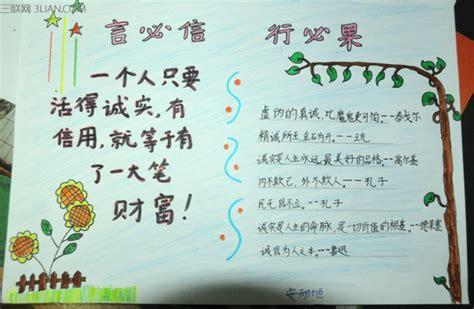 三联网 3LIAN.COM
言必信 行必果
一个人只要
活得诚实,有
信用,就等于有
了一大笔
财富!
虚伪的真诚,比魔鬼更可怕。---泰戈尔
精诚所至,金石为开。---王充
诚实是人生永远最美好的品格。---高尔基
内不欺己,外不欺人。---孔子
民无信不立。---孔子
诚实是人生的命脉,是一切价值的根基。---德莱塞
诚信为人之本。---鲁迅